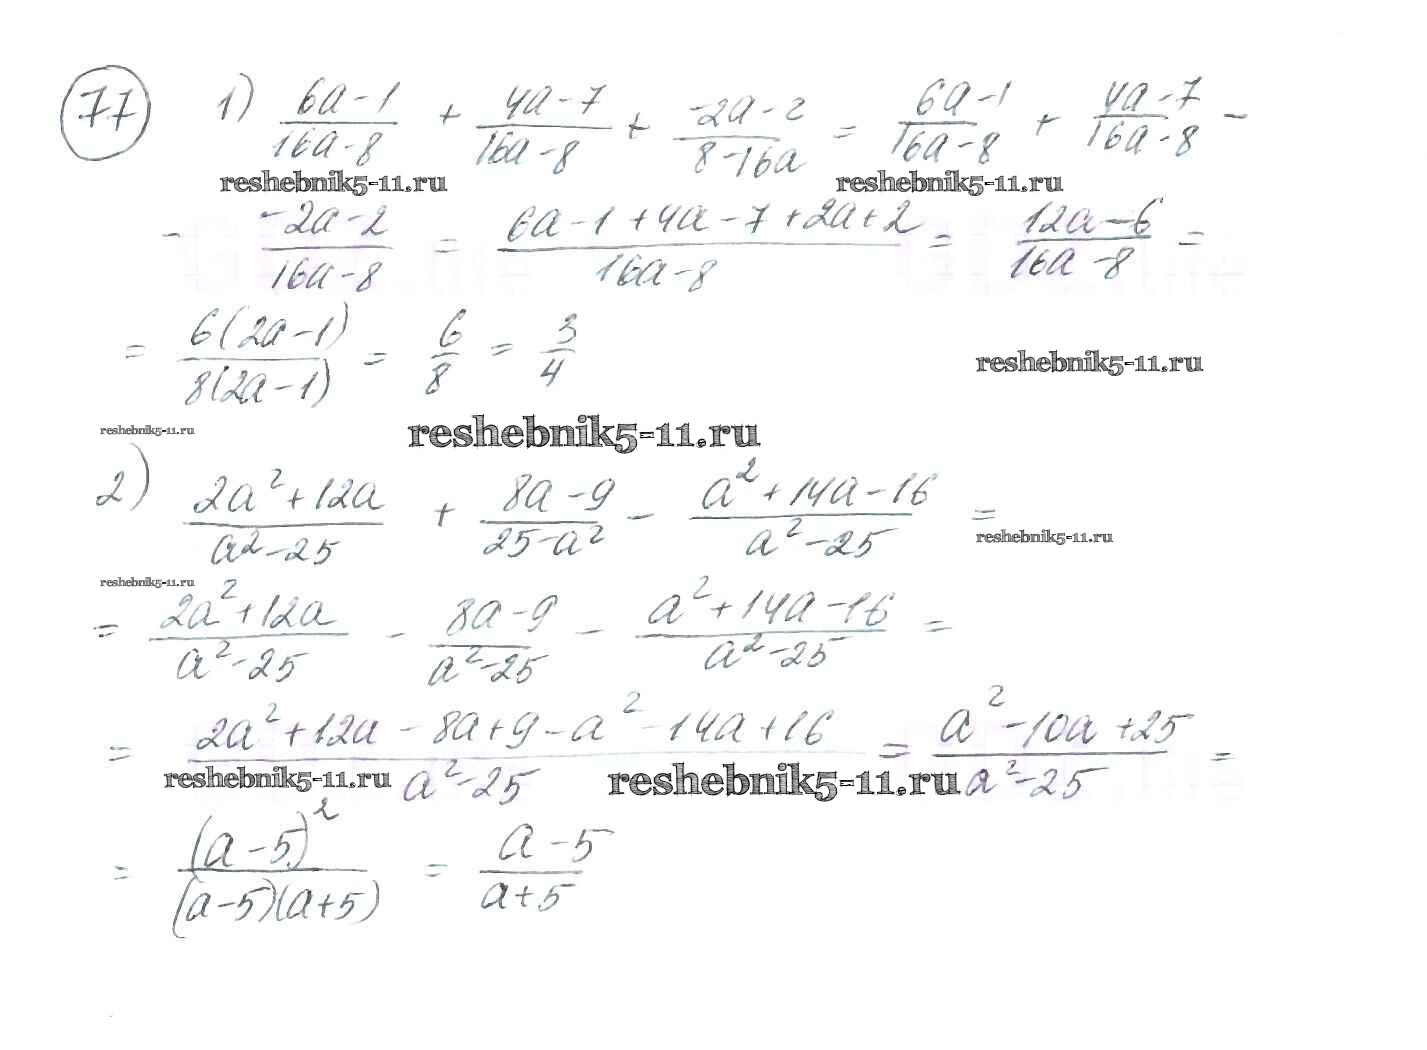 77 1) (6a-1)/(16a-8) + (4a-7)/(16a-8) + (-2a-2)/(8-16a) = (6a-1)/(16a-8) + (4a-7)/(16a-8) -
reshebnik5-11.ru reshebnik5-11.ru
- (-2a-2)/(16a-8) = (6a-1+4a-7+2a+2)/(16a-8) = (12a-6)/(16a-8) =
= 6(2a-1)/8(2a-1) = 6/8 = 3/4
reshebnik5-11.ru
reshebnik5-11.ru reshebnik5-11.ru
2) (2a²+12a)/(a²-25) + (8a-9)/(25-a²) - (a²+14a-16)/(a²-25) =
reshebnik5-11.ru
reshebnik5-11.ru
= (2a²+12a)/(a²-25) - (8a-9)/(a²-25) - (a²+14a-16)/(a²-25) =
= (2a²+12a-8a+9-a²-14a+16)/(a²-25) = (a²-10a+25)/(a²-25) =
reshebnik5-11.ru reshebnik5-11.ru
= (a-5)²/(a-5)(a+5) = (a-5)/(a+5)